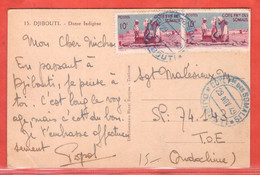 13. DJIBOUTI. - Danse Indigène
Mon Cher Michou
En passant à
Djibouti, je pense à
toi. c'est long le voy
age, mais c'est du bon.
Je t'embrasse affectueu
sement
Popol
10F
10F
COTE FSE DES SOMALIS
Sgt
SP. 74.142
T.O.E
(Indochine)